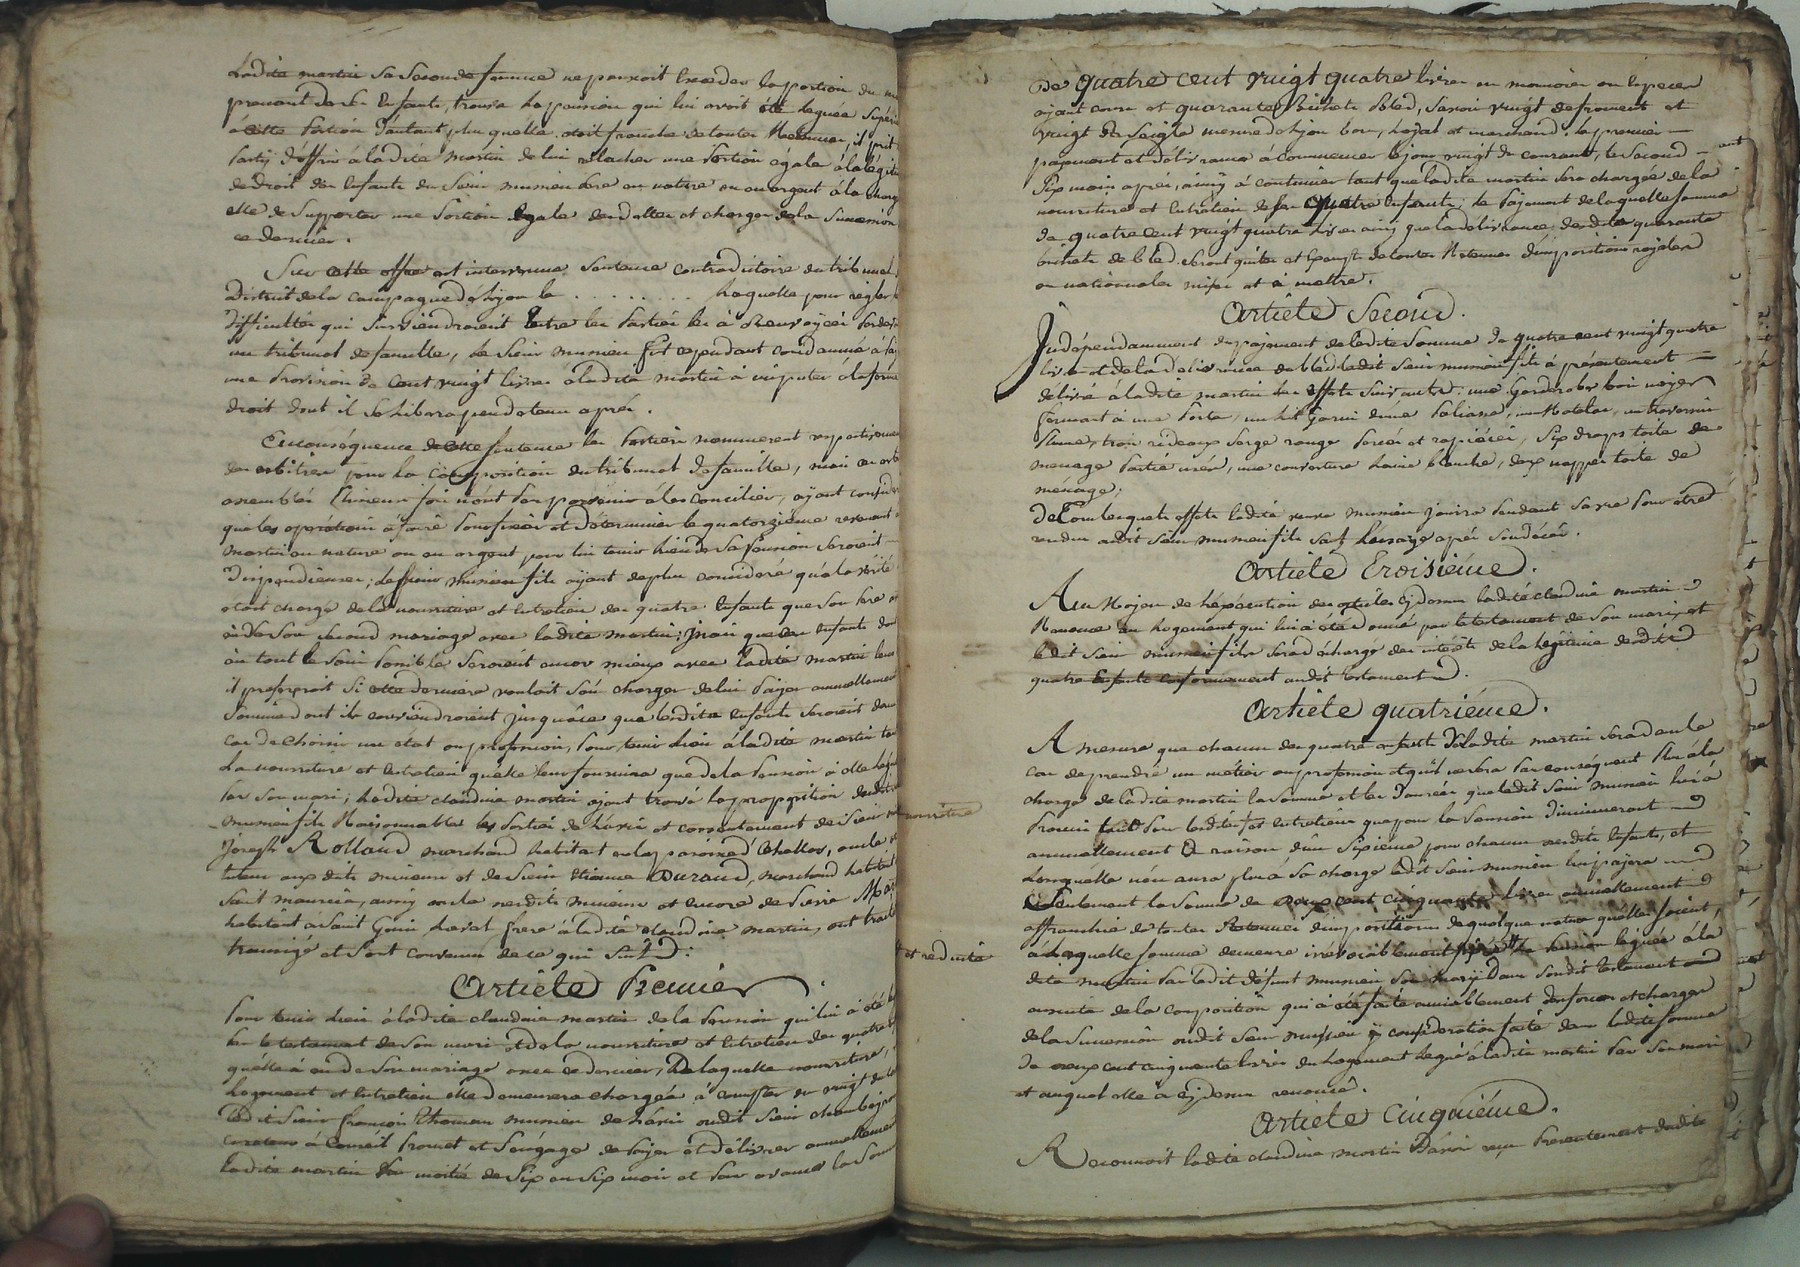 Ladite martin sa Seconde femme ne pouvoit Exceder la portion du
prenant de ses Enfants, trouva la pension qui lui avoit été leguée Supérie
à cette Portion d'autant plus quelle étoit franche de toutes Retenues, il prit
Party d'offrir à ladite martin de lui relacher une Portion égale à la légit
de droit des Enfants du Sieur munier Pere en nature ou en argent à la charg
elle de Supporter une Portion Egale des dettes et charges de la Succession
ce dernier.
Sur cette offre est intervenue Sentence contradictoire du tribunal
District de la campagne de Lyon le . . . . . . . . Laquelle pour régler
Difficultés qui Surviendroient Entre les Parties les à Renvoyées Pardev
un tribunal de famille, Le Sieur munier fut cependant condamné à
une Provision de Cent vingt livres à ladite martin à imputer
droit dont il Se libera peu de tems après.
En conséquence de cette Sentence les Parties nommerent respectiveme
des arbitres pour la Composition du tribunal de famille, mais ces arb
assemblés Plusieurs fois n'ont Pas parvenir à les concilier, ayant
que les opérations à faire Pour fixer et Déterminer le quatorzieme revenant
martin en nature ou en argent pour lui tenir Lieu de Sa Pension Seroient
Dispendieuses; Le Sieur munier fils ayant de plus consideré qu'à la vérité
étoit chargé de la nourriture et Entretien des quatre Enfants que Son Pere
eû de Son Second mariage avec ladite martin; mais que ces Enfants
eu tout le Soin Possible Seroient encor mieux avec ladite martin leur
il préféreroit Si cette derniere vouloit S'en charger de lui Païer annuellement
Somme dont ils conviendroient jusqu'à ce que lesdits Enfants Seroient dans
cas de Choisir un état ou profession, Pour tenir Lieu à ladite martin
La nourriture et Entretien qu'elle leur fournira que de la Pension à elle
Par Son mari; Ladite claudine martin ayant trouvé la proposition dudit
munier fils Raisonnable les Parties de L'avis et consentement de Sieur
Joseph Rolland marchand habitant en la paroisse d'Echallas, oncle et
tuteur aux dits mineurs et de Sieur Etienne Durand, marchand habitant
Saint maurice, aussy oncle desdits mineurs et encore de Pierre Mar
habitant à Saint Genis Laval frere à ladite claudine martin, ont traité
transigé et Sont convenus de ce qui Suit:
Article Premier
Pour tenir Lieu à ladite claudine martin de la Pension qui lui à été
Par le testament de Son mari et de la nourriture et Entretien des quatre
qu'elle à eu de Son mariage avec ce dernier, De laquelle nourriture,
Logement et Entretien elle demeurera chargée à compter du vingt
Ledit Sieur françois Thomas munier de L'avis dudit Sieur
curateur à Conseil Promet et S'engage de Païer et Délivrer annuellement
ladite martin Par moitié de Six en Six mois et Par avance la Som
nourriture
et reduite
De quatre cent vingt quatre livres en monnoies ou Especes
ayant cours et quarante Bichets Bled, Savoir vingt de froment et
vingt de Seigle mesure de Lyon bon, Loyal et marchand. Le premier
payement et Délivrance à commencer le jour vingt du courant, le Second
Six mois après, ainsy à continuer tant que ladite martin Sera chargée de la
nourriture et Entretien de Ses quatre Enfants; Le Païement de laquelle Somme
de quatre cent vingt quatre livres ainsy que la délivrance desdits quarante
bichets de bled Seront quittes et Exempts de toutes Retenues d'impositions royales
ou nationales mises et à mettre.
Article Second.
Indépendamment du païement de ladite Somme de quatre cent vingt quatre
livres et de la Délivrance du bled ledit Sieur munier fils à présentement
délivré à ladite martin les effets Suivants: une garderobe bois noyer
fermant à une Porte, un lit Garni d'une Paliasse, un Matelas, un traversin
Plume, trois rideaux Serge rouge Percés et rapiécés, Six draps toile de
menage Partie usés, une couverture Laine blanche, deux nappes toile de
ménage;
Desquels effets ladite veuve munier jouira Pendant Sa vie Pour être
rendus audit Sieur munier fils Sauf L'usage après Son décès.
Article Troisiéme.
Au Moyen de L'éxécution des articles cy dessus ladite claudine martin
Renonce au Logement qui lui à été donné par le testament de Son mari, et
ledit Sieur munier fils Sera déchargé des intérêts de la légitime desdits
quatre Enfants conformement audit testament.
Article quatriéme.
A mesure que chacun des quatre enfants de ladite martin Sera dans le
cas de prendre un métier ou profession et qu'il ne Sera Par conséquent Plus à la
charge de ladite martin la Somme et les Danrées que ledit Sieur munier lui à
Promis tant Pour lesdits et entretien que pour la Pension Diminueront
annuellement à raison d'un Sixieme pour chacun desdits Enfants, et
Lorsquelle n'en aura plus à Sa charge ledit Sieur munier lui païera
Seulement la Somme de deux cent cinquante livres annuellement
affranchie de toutes Retenues d'impositions de quelque nature qu'elles Soient,
à Laquelle Somme demeure irrévocablement fixée la Pension léguée à la
dite martin Par ledit défunt munier Son mari Dans Sondit testament
ensuite de la composition qui à été faite amiablement des forces et charges
de la Succession dudit Sieur munier en considération faite dans ladite Somme
de deux cent cinquante livres du Logement Legué à ladite martin Par Son mari
et auquel elle à cy dessus renoncé.
Article Cinquiéme.
Reconnoit ladite claudine martin D'avoir reçu Présentement dudit